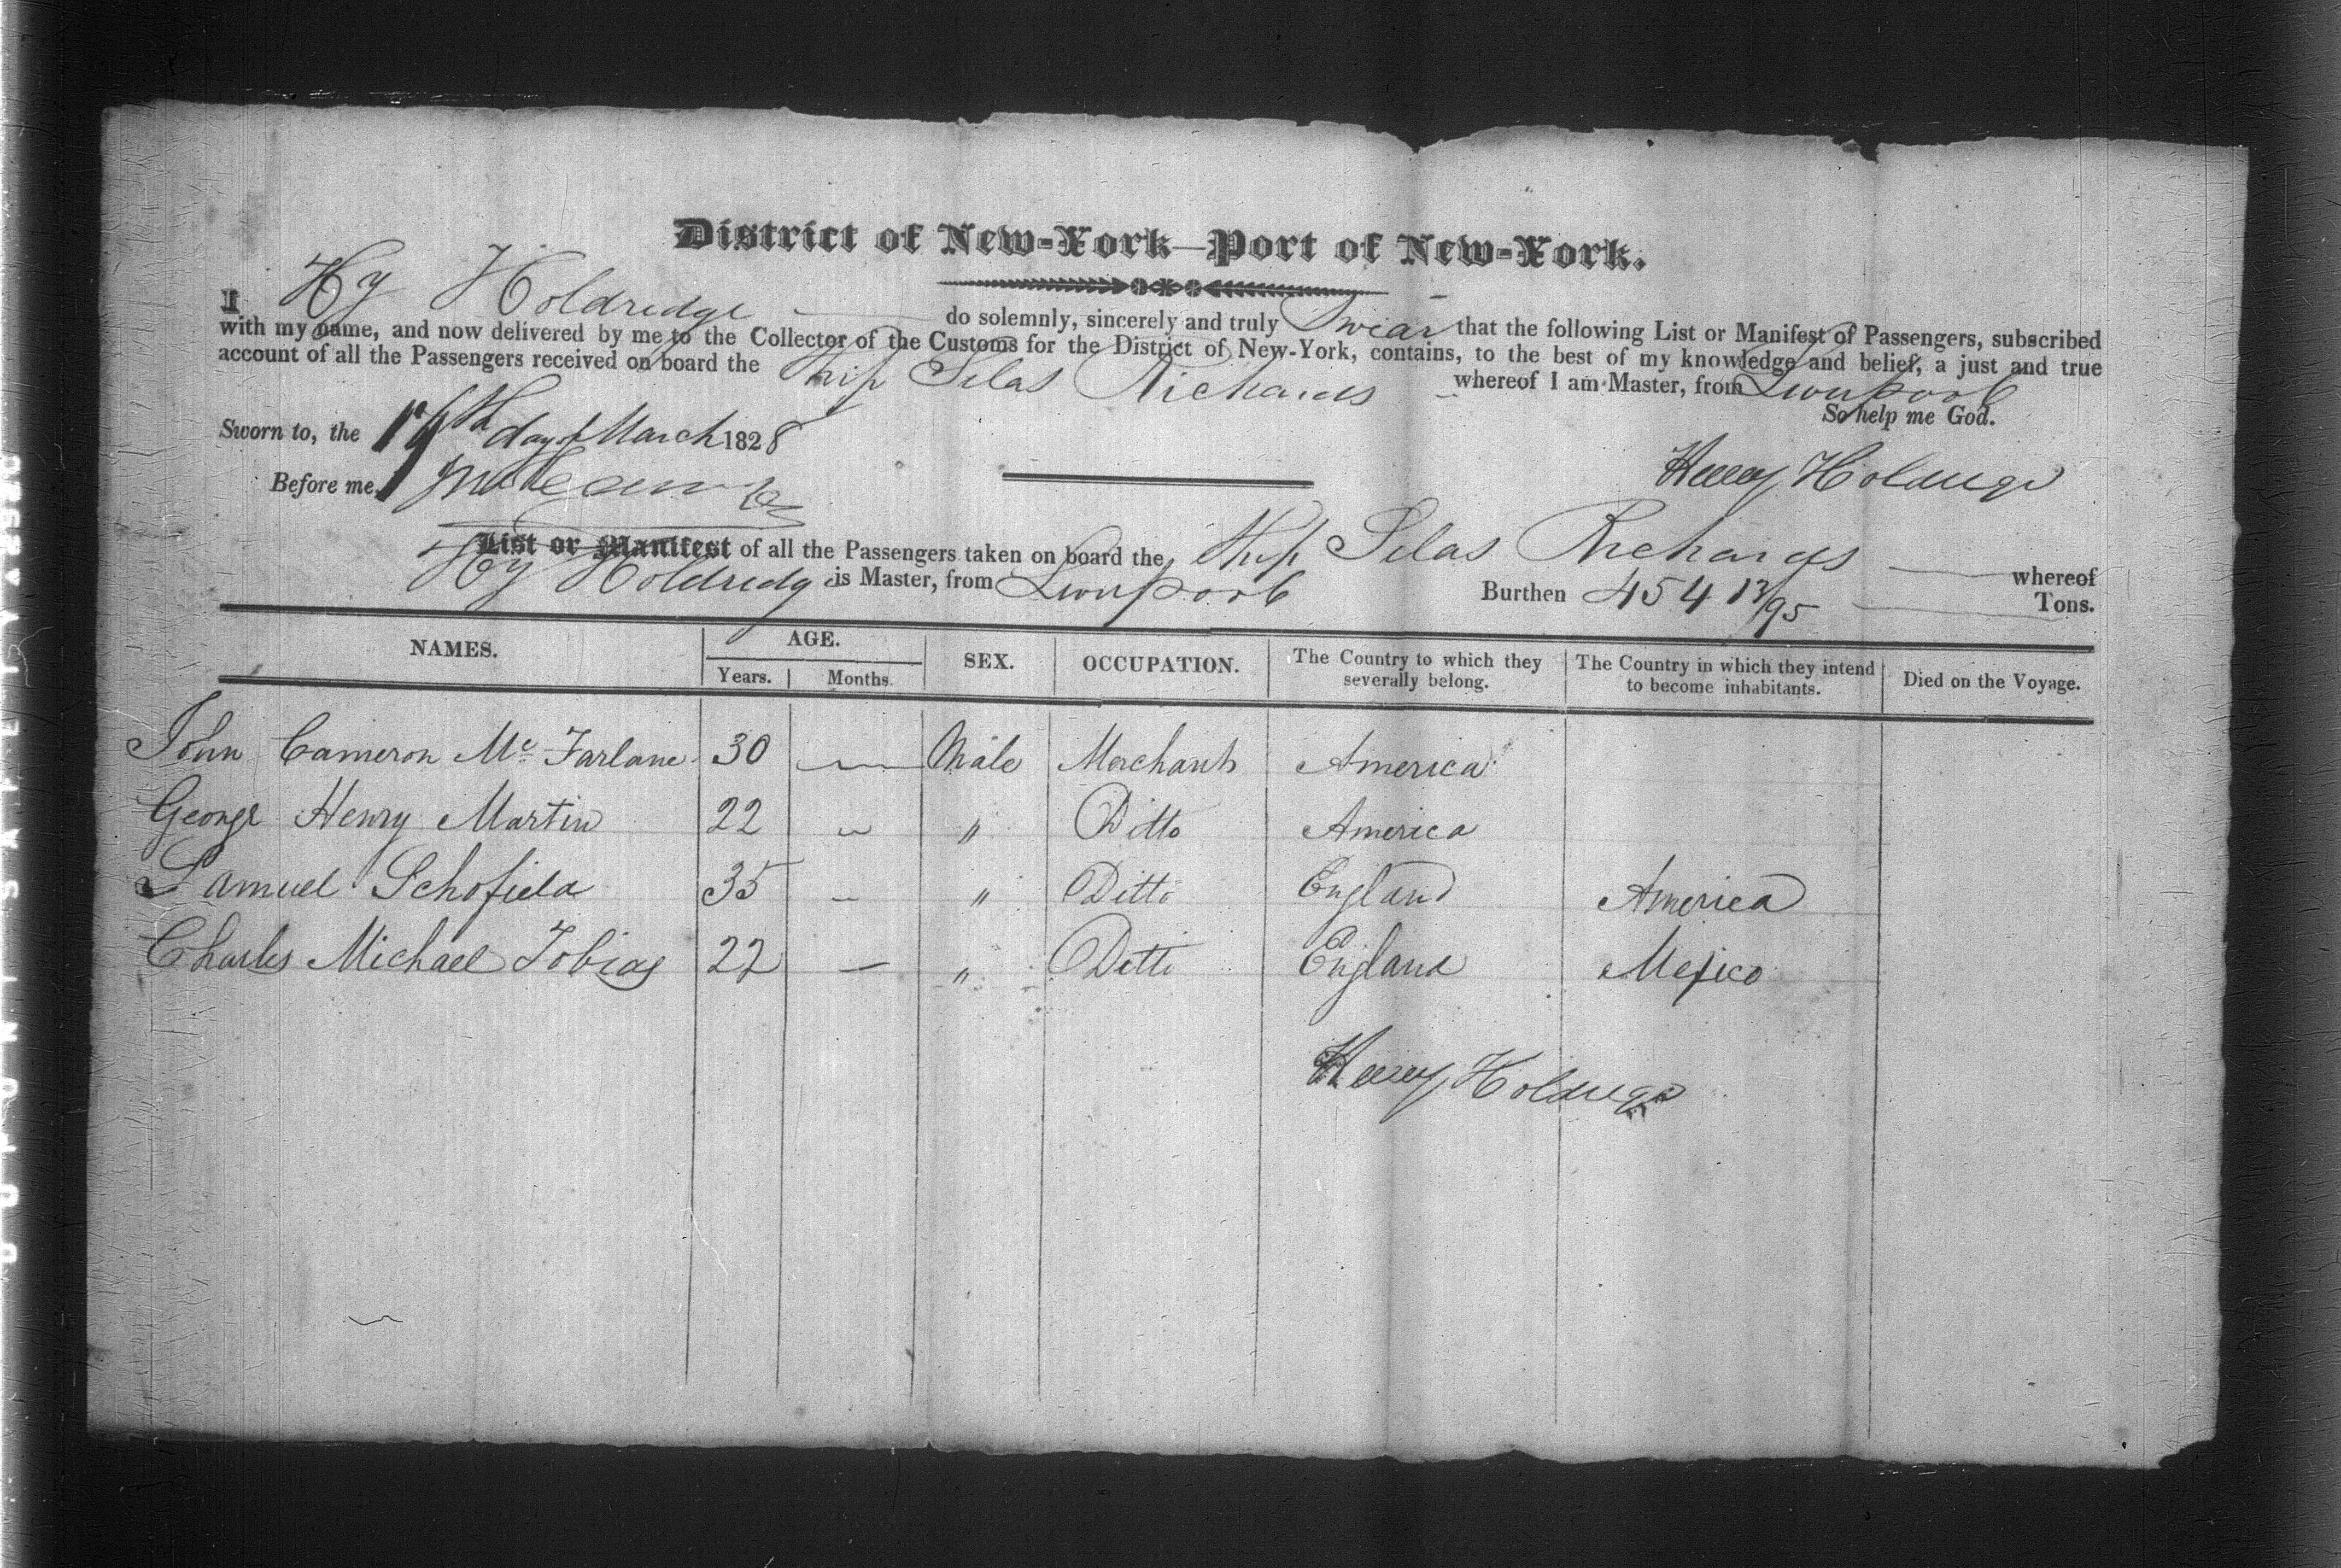 District of New-York—Port of New-York.
I Hy Holdredge do solemnly, sincerely and truly Swear that the following List or Manifest of Passengers, subscribed
with my name, and now delivered by me to the Collector of the Customs for the District of New-York, contains, to the best of my knowledge and belief, a just and true
account of all the Passengers received on board the Ship Silas Richards whereof I am Master, from Liverpool
So help me God.
Sworn to, the day of March 1828
Before me,
Henry Holdrege
List or Manifest of all the Passengers taken on board the Ship Silas Richards whereof
Hy Holdredge is Master, from Liverpool Burthen 454 13/95 Tons.
NAMES. AGE. SEX. OCCUPATION. The Country to which they severally belong. The Country in which they intend to become inhabitants. Died on the Voyage.
Years. Months.
John Cameron Mc Farlane 30 — Male Merchant America
George Henry Martin 22 — " Ditto America
Samuel Schofield 35 — " Ditto England America
Charles Michael Tobias 22 — " Ditto England Mejico
Henry Holdrege